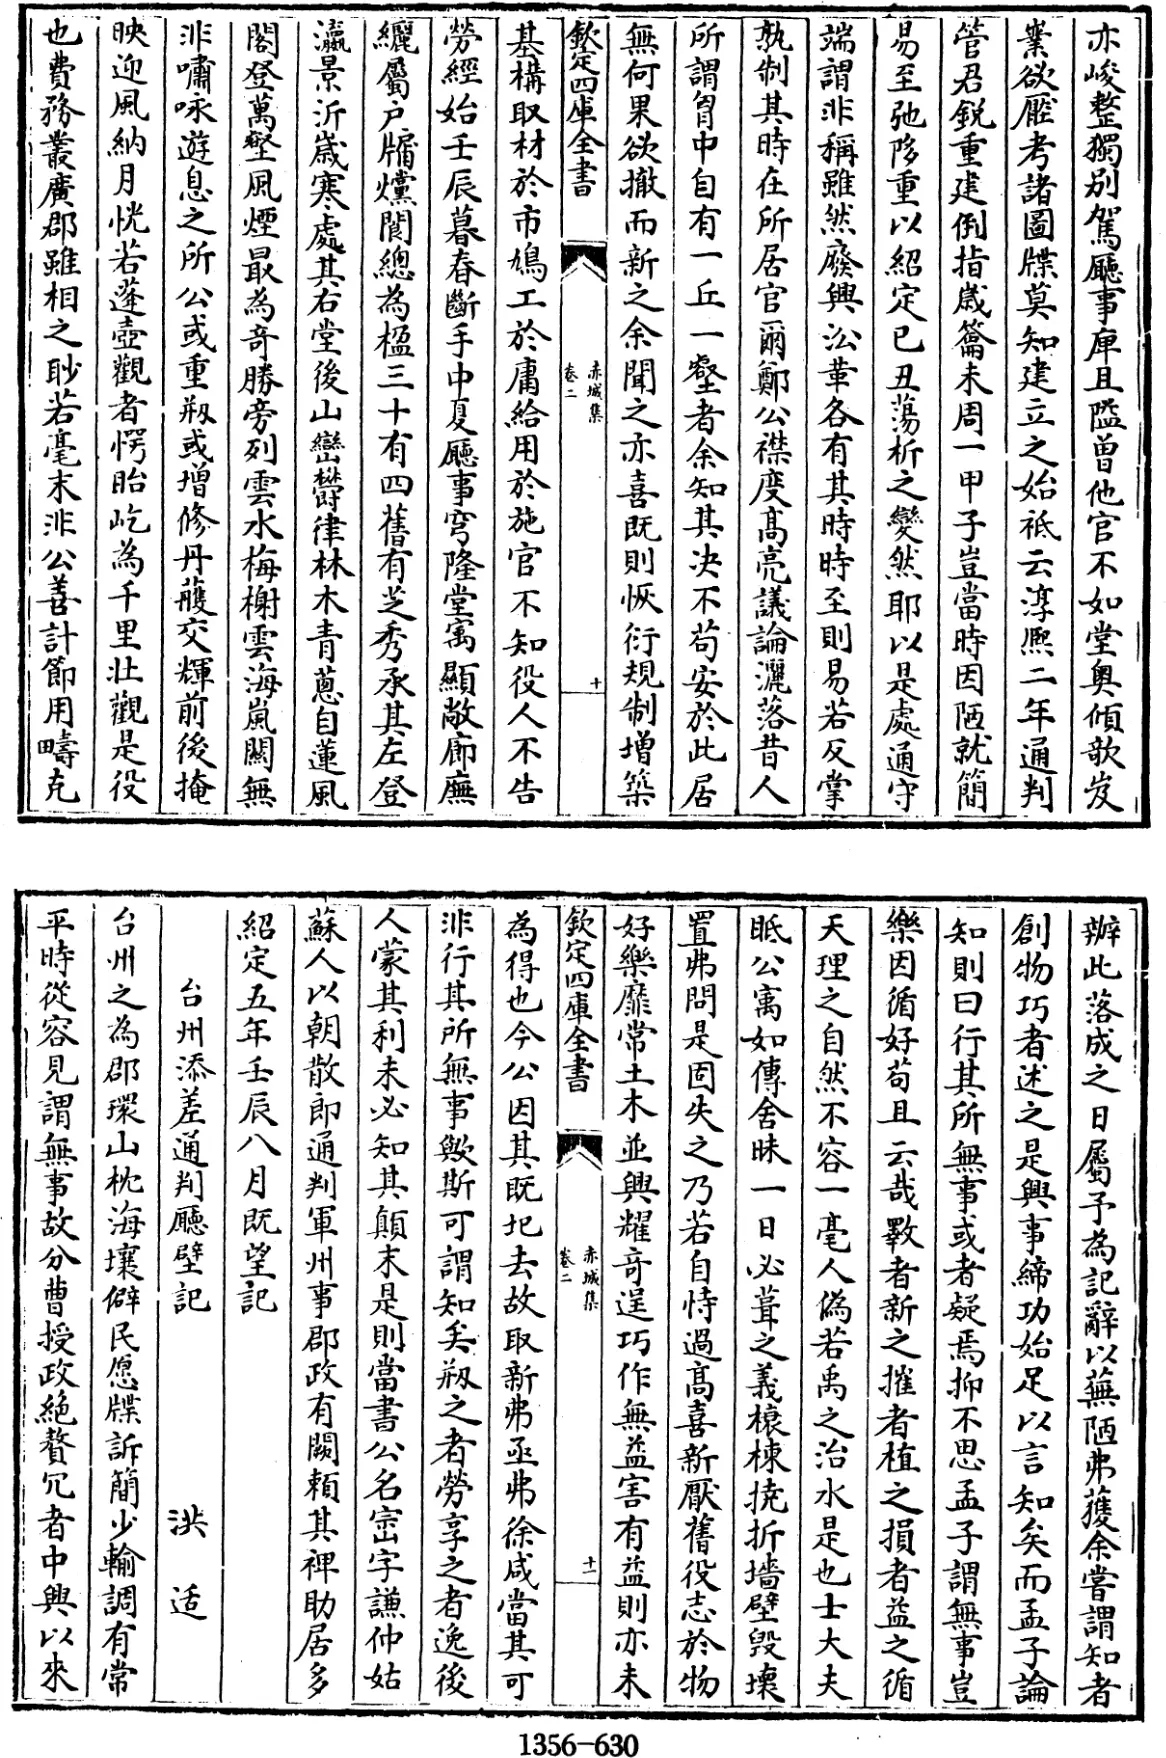 亦峻整獨别駕廳事庳且隘曽他官不如堂奥傾欹岌
業欲壓考諸圖牒莫知建立之始祗云淳熈二年通判
管君鋭重建倒指嵗籥未周一甲子豈當時因陋就簡
易至弛陊重以紹定己丑蕩析之變然耶以是處通守
端謂非稱雖然廢興沿革各有其時時至則易若反掌
孰制其時在所居官爾鄭公襟度髙亮議論灑落昔人
所謂胷中自有一丘一壑者余知其决不苟安於此居
無何果欲撤而新之余聞之亦喜既則恢衍規制增築
欽定四庫全書
赤城集
卷二
十
基構取材於市鳩工於庸給用於施官不知役人不告
勞經始壬辰暮春斷手中夏廳事穹隆堂寓顯敞廊廡
纚屬户牖爣閬總為楹三十有四舊有芝秀承其左登
瀛景沂嵗寒處其右堂後山巒欝律林木青蔥自蓮風
閣登萬壑風煙最為竒勝旁列雲水梅榭雲海嵐闗無
非嘯咏遊息之所公或重剏或增修丹雘交輝前後掩
映迎風納月恍若蓬壺觀者愕眙屹為千里壯觀是役
也費務叢廣郡雖相之眇若毫末非公善計節用疇克
辦此落成之日屬予為記辭以蕪陋弗獲余嘗謂知者
創物巧者述之是興事締功始足以言知矣而孟子論
知則曰行其所無事或者疑焉抑不思孟子謂無事豈
樂因循好苟且云哉斁者新之摧者植之損者益之循
天理之自然不容一毫人偽若禹之治水是也士大夫
眂公寓如傳舍昧一日必葺之義榱棟撓折墻壁毀壞
置弗問是固失之乃若自恃過髙喜新厭舊役志於物
好樂靡常土木並興耀竒逞巧作無益害有益則亦未
欽定四庫全書
赤城集
卷二
十一
為得也今公因其既圮去故取新弗亟弗徐咸當其可
非行其所無事歟斯可謂知矣剏之者勞享之者逸後
人蒙其利未必知其顛末是則當書公名宻字謙仲姑
蘇人以朝散郎通判軍州事郡政有闕頼其禆助居多
紹定五年壬辰八月既望記
台州添差通判廳壁記　洪适
台州之為郡環山枕海壤僻民愿牒訴簡少輸調有常
平時從容見謂無事故分曹授政絶贅冗者中興以來
1356-630